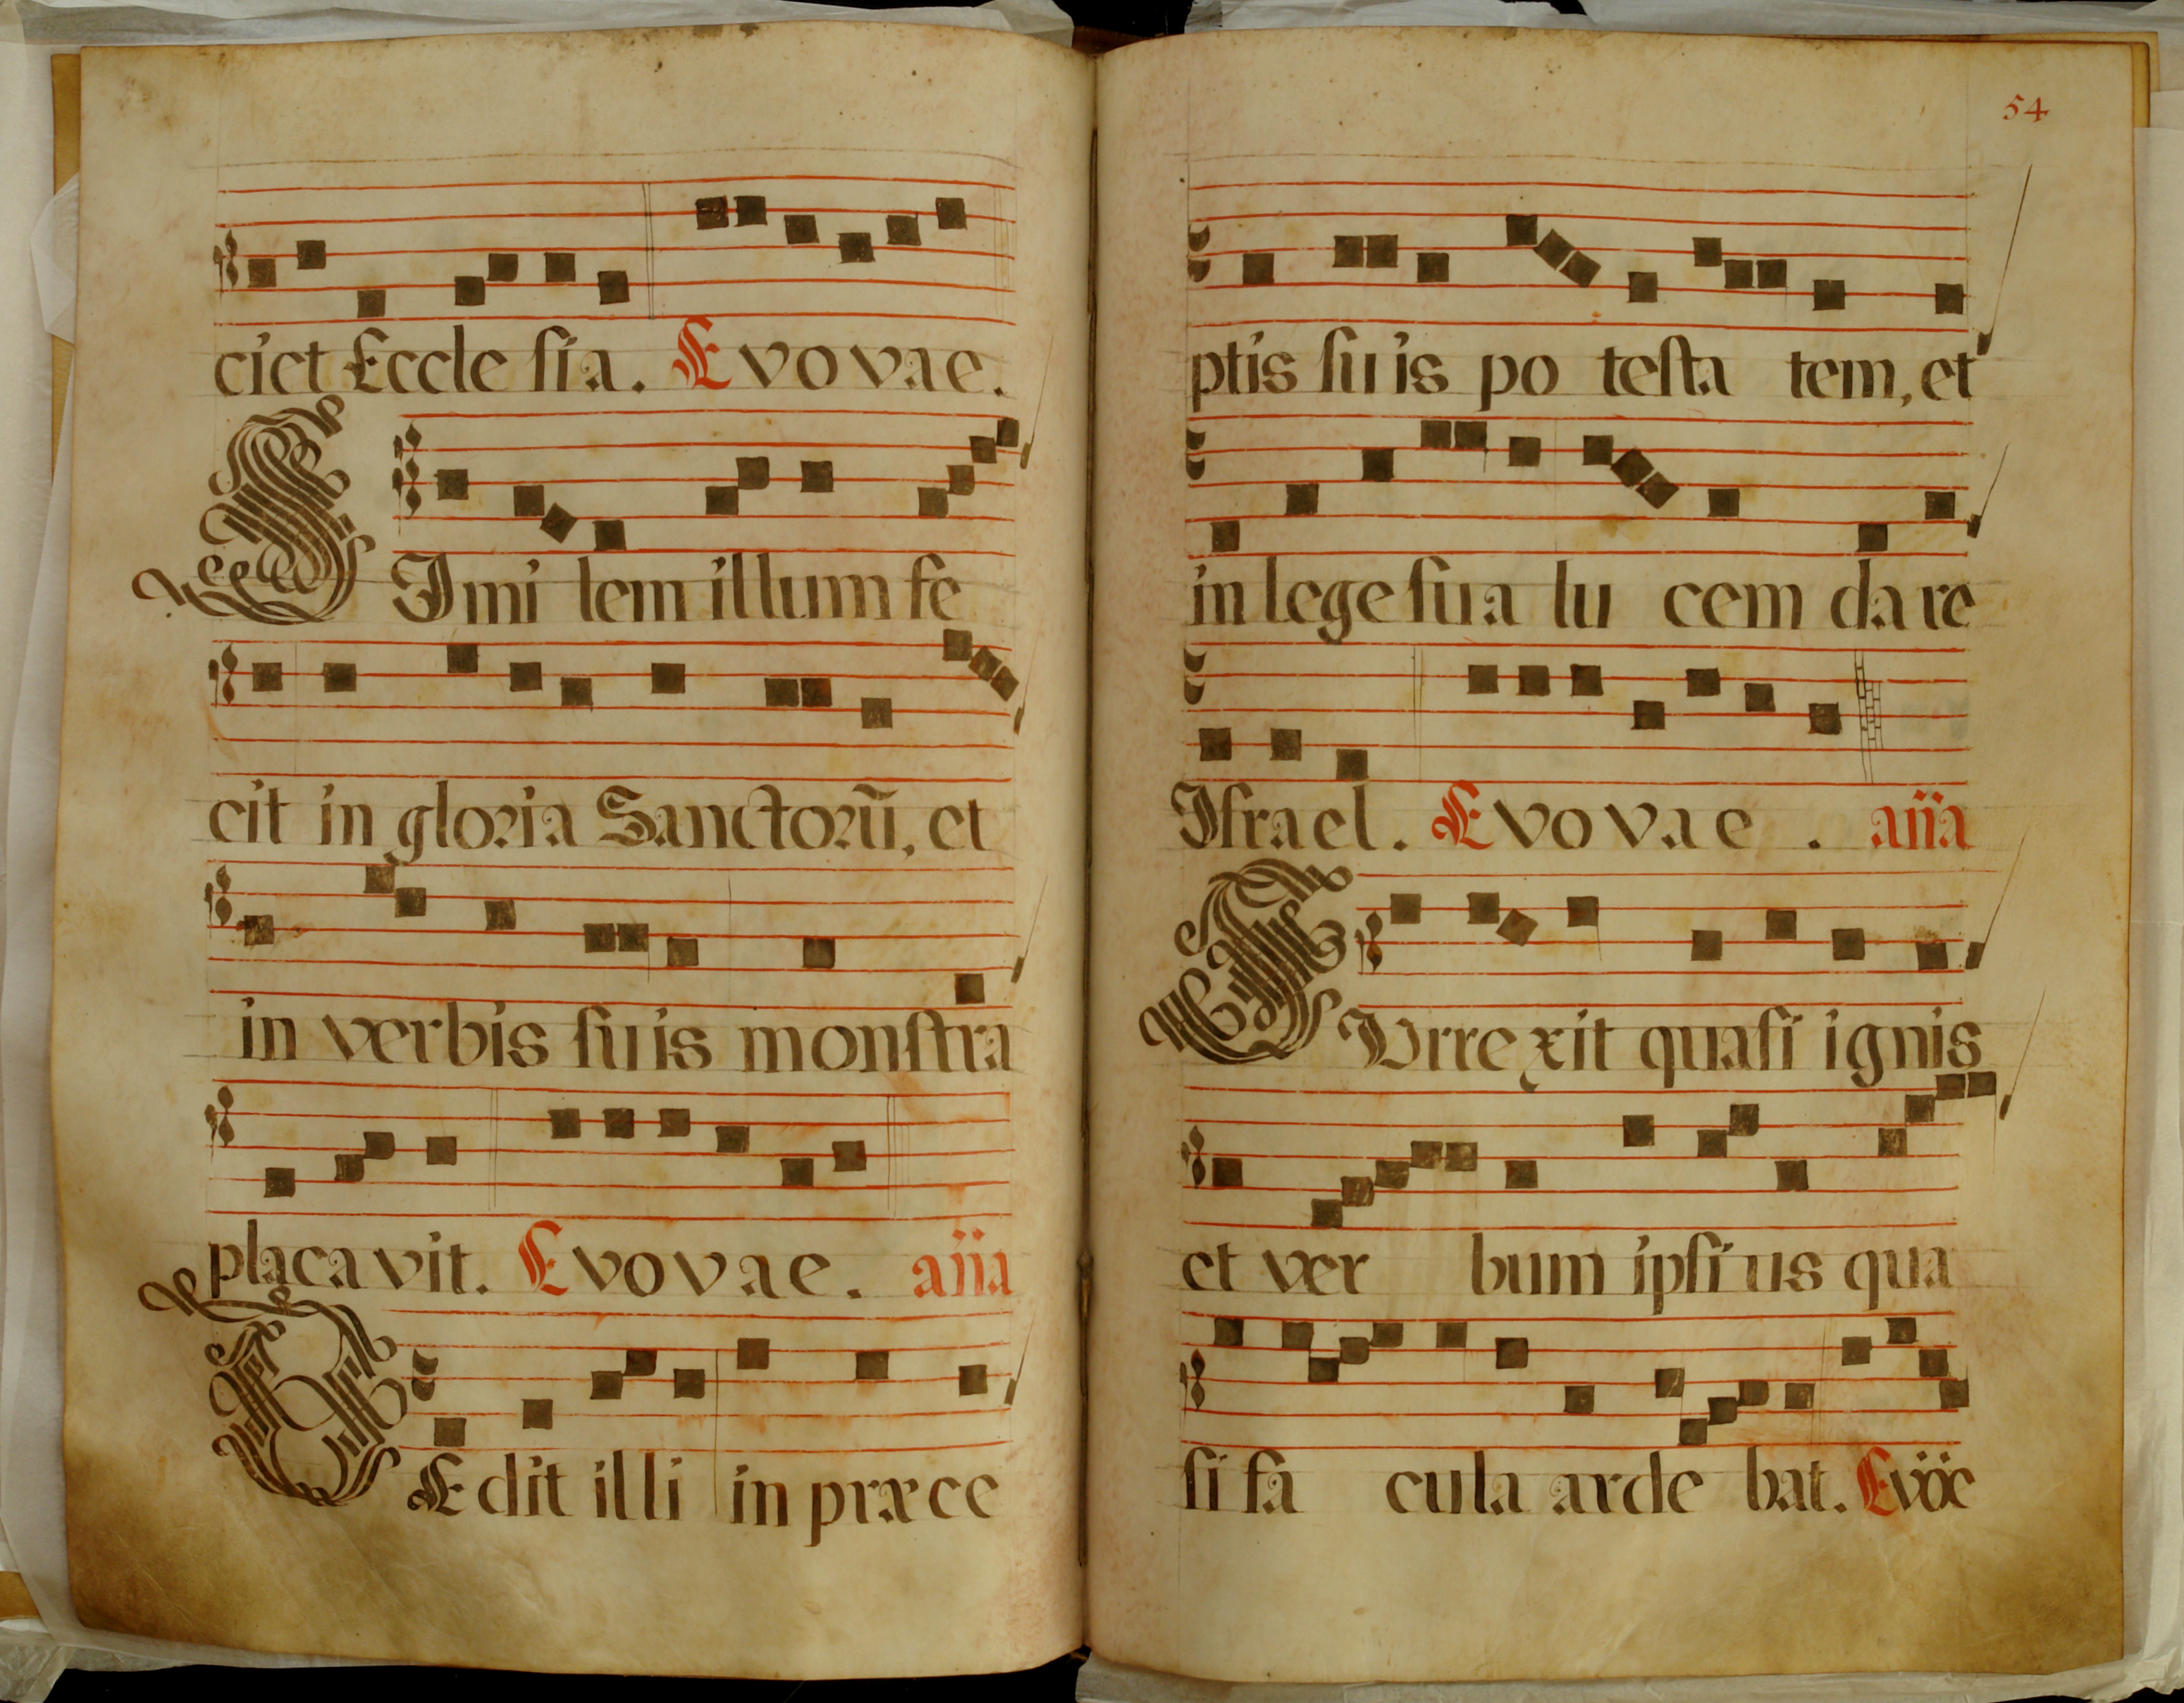 ciet Eccle sia. Evovae.
SImi lem illum fe
cit in gloria Sanctorū, et
in verbis suis monstra
placavit. Evovae. aña
DEdit illi in præce
54
ptis suis po testa tem, et
in lege sua lu cem dare
Israel. Evovae. aña
SUrrexit quasi ignis
et ver bum ipsius qua
si fa cula arde bat. Evöë